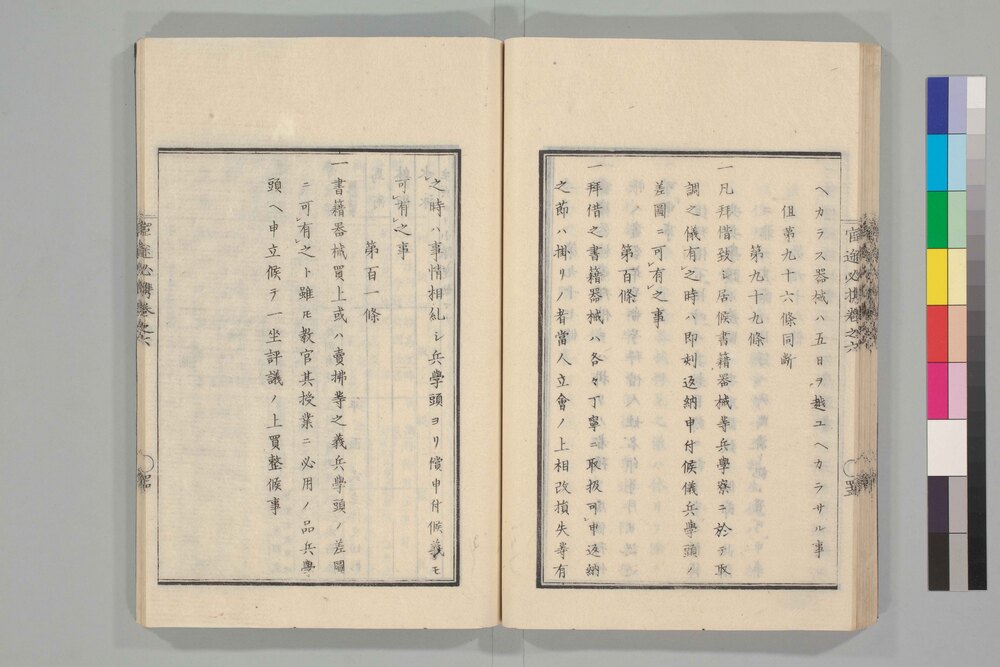 ヘカラス器械ハ五日ヲ越ユヘカラサル事
但第九十六條同斷
第九十九條
一凡拜借致シ居候書籍器械等兵學寮ニ於テ取
調之儀有之時ハ即刻返納申付候儀兵學頭ノ
差圖ニ可有之事
第百條
一拜借之書籍器械ハ各々丁寧ニ取扱可申返納
之節ハ掛リノ者當人立會ノ上相改損失等有
之時ハ事情相糺シ兵學頭ヨリ償申付候義モ
可有之事
第百一條
一書籍器械買上或ハ賣拂等之義兵學頭ノ差圖
ニ可有之ト雖モ教官其授業ニ必用ノ品兵學
頭ヘ申立候テ一坐評議ノ上買整候事
官途必携卷之六